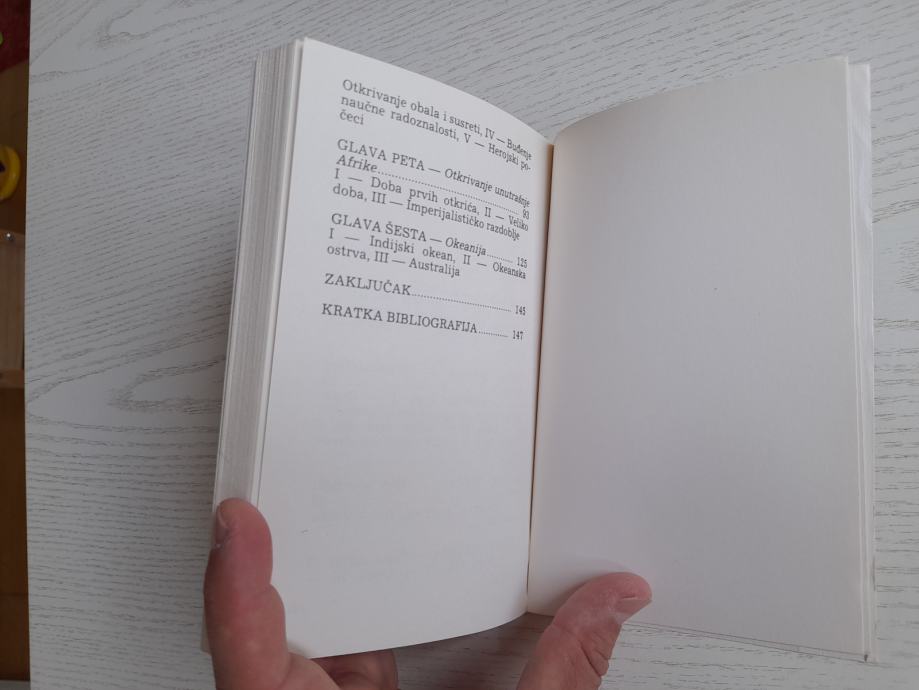 Otkrivanje obala i susreti, IV — Buđenje
naučne radoznalosti, V — Herojski po-
čeci
GLAVA PETA — Otkrivanje unutrašnje
Afrike................................................ 93
I — Doba prvih otkrića, II — Veliko
doba, III — Imperijalističko razdoblje
GLAVA ŠESTA — Okeanija.......... 125
I — Indijski okean, II — Okeanska
ostrva, III — Australija
ZAKLJUČAK.................................. 145
KRATKA BIBLIOGRAFIJA............ 147